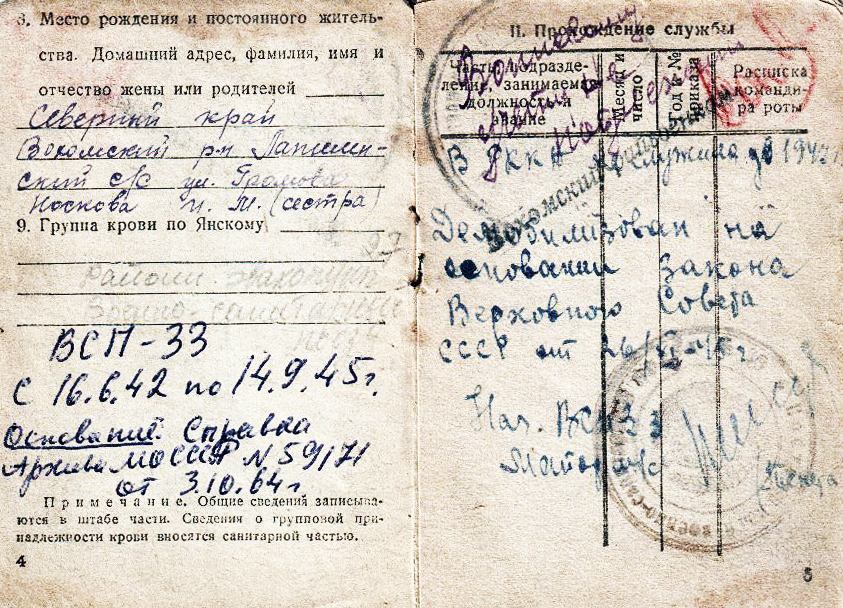 8. Место рождения и постоянного житель-
ства. Домашний адрес, фамилия, имя и
отчество жены или родителей
Северний край
Вохомский р-н Лапшин-
ский с/с ул. Громова
Носкова И. М. (сестра)
9. Группа крови по Янскому
Районн
ВСП-33
С 16.6.42 по 14.9.45г.
Основание: Справка
Архива МО СССР N 59171
от 3.10.64г
Примечание. Общие сведения записыва-
ются в штабе части. Сведения о групповой при-
надлежности крови вносятся санитарной частью.
4
II. Прохождение службы
Часть, подразде-
ление, занимаемая
должность и
звание
Месяц и
число
Год и №
приказа
Расписка
команди-
ра роты
Военкомат
Вохомский
В РККА служила до 1945 г
Демобилизован на
основании Закона
Верховного Совета
СССР от
Нач. ВСП 33
Майор м/с
5